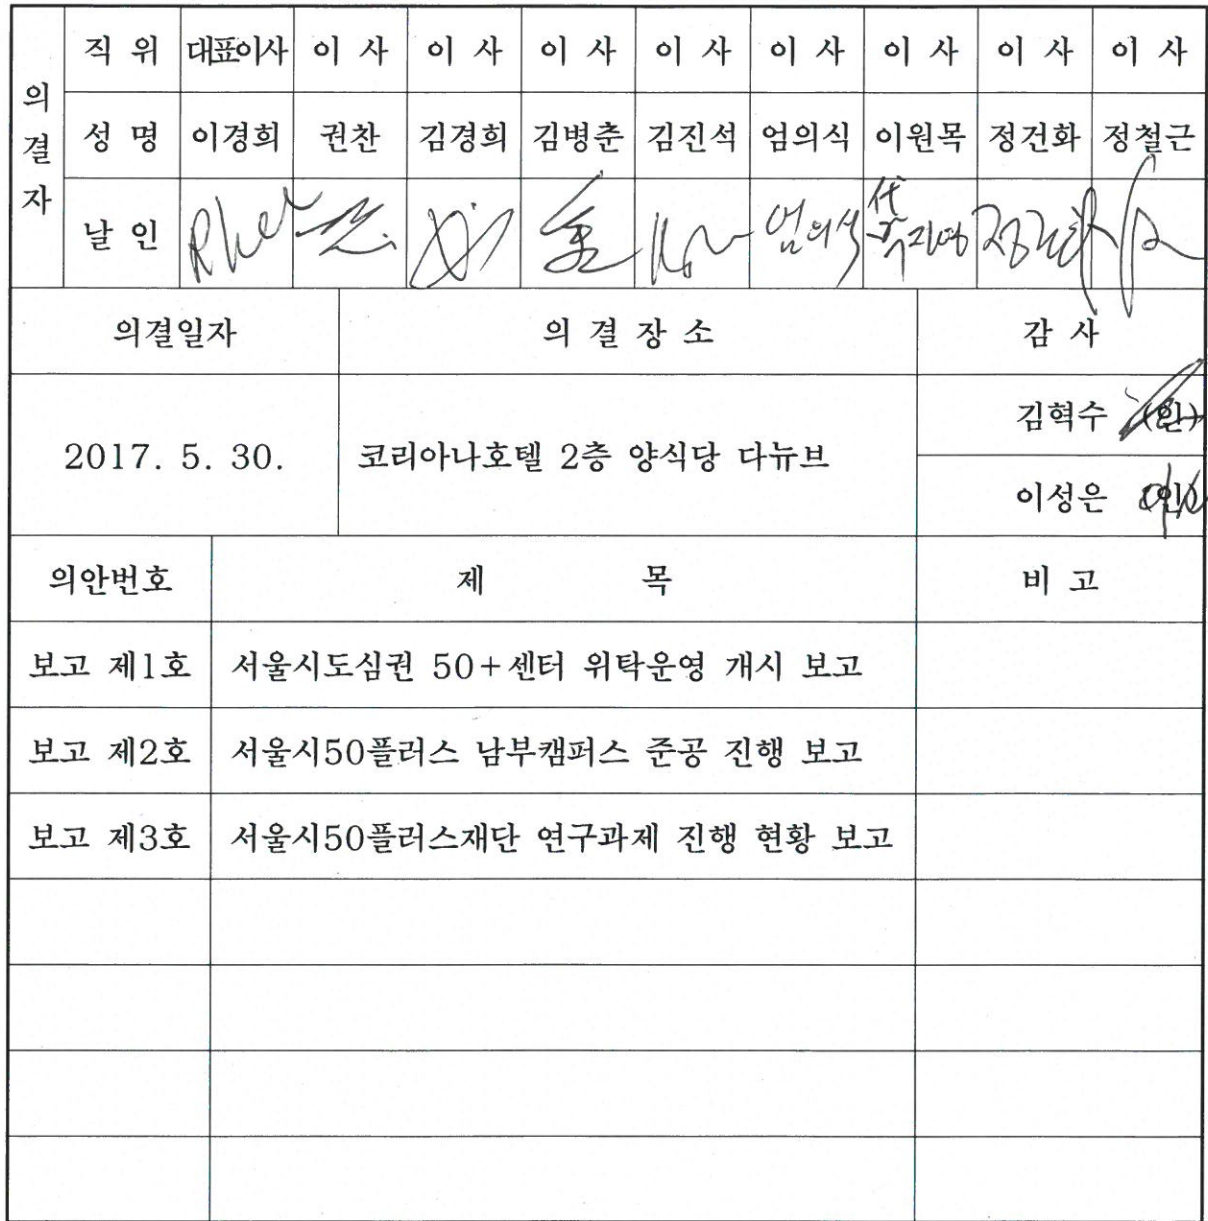 의결자
직 위 대표이사 이 사 이 사 이 사 이 사 이 사 이 사 이 사 이 사
성 명 이경희 권찬 김경희 김병춘 김진석 엄의식 이원목 정건화 정철근
날 인 엄의식 代 정건화
의결일자 의 결 장 소 감 사
김혁수 (인)
2017. 5. 30. 코리아나호텔 2층 양식당 다뉴브
이성은 (인)
의안번호 제 목 비 고
보고 제1호 서울시도심권 50+센터 위탁운영 개시 보고
보고 제2호 서울시50플러스 남부캠퍼스 준공 진행 보고
보고 제3호 서울시50플러스재단 연구과제 진행 현황 보고